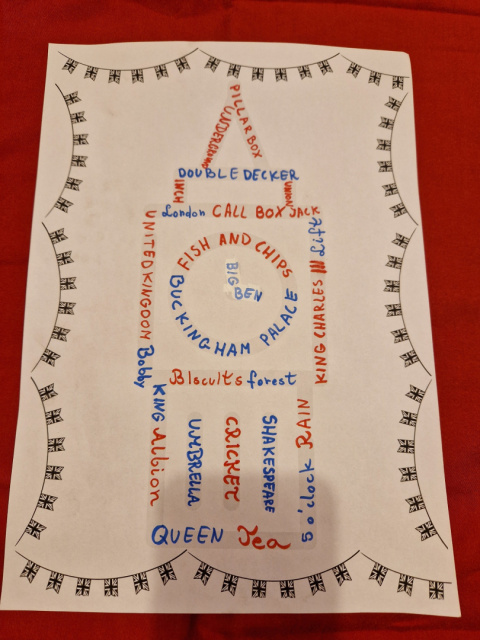 PILLARBOX
UNDERGROUND
DOUBLE DECKER
INCH
UNION
JACK
London CALL BOX
Lift
UNITED KINGDOM
FISH AND CHIPS
BIG
BEN
BUCKINGHAM PALACE
KING CHARLES III
Bobby
Biscuits forest
KING Albion
UMBRELLA
CRICKET
SHAKESPEARE
5 o'clock RAIN
QUEEN Tea